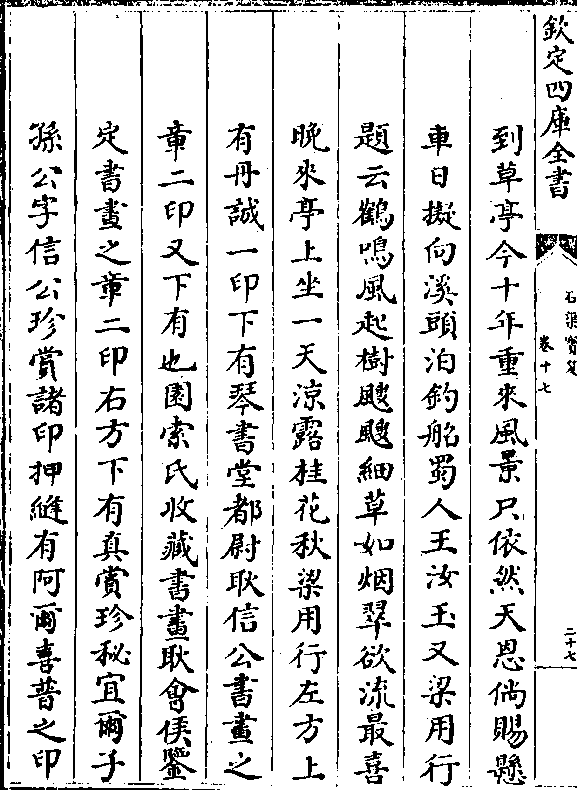 欽定四庫全書
石渠寶笈
卷十七
二十七
到草亭今十年重來風景只依然天恩倘賜懸
車日擬向溪頭泊釣船蜀人王汝玉又梁用行
題云鶴鳴風起樹颼颼細草如烟翠欲流最喜
晚來亭上坐一天凉露桂花秋梁用行左方上
有丹誠一印下有琴書堂都尉耿信公書畫之
章二印又下有也園索氏收藏書畫耿會侯鑒
定書畫之章二印右方下有真賞珍秘宜爾子
孫公字信公珍賞諸印押縫有阿爾喜普之印